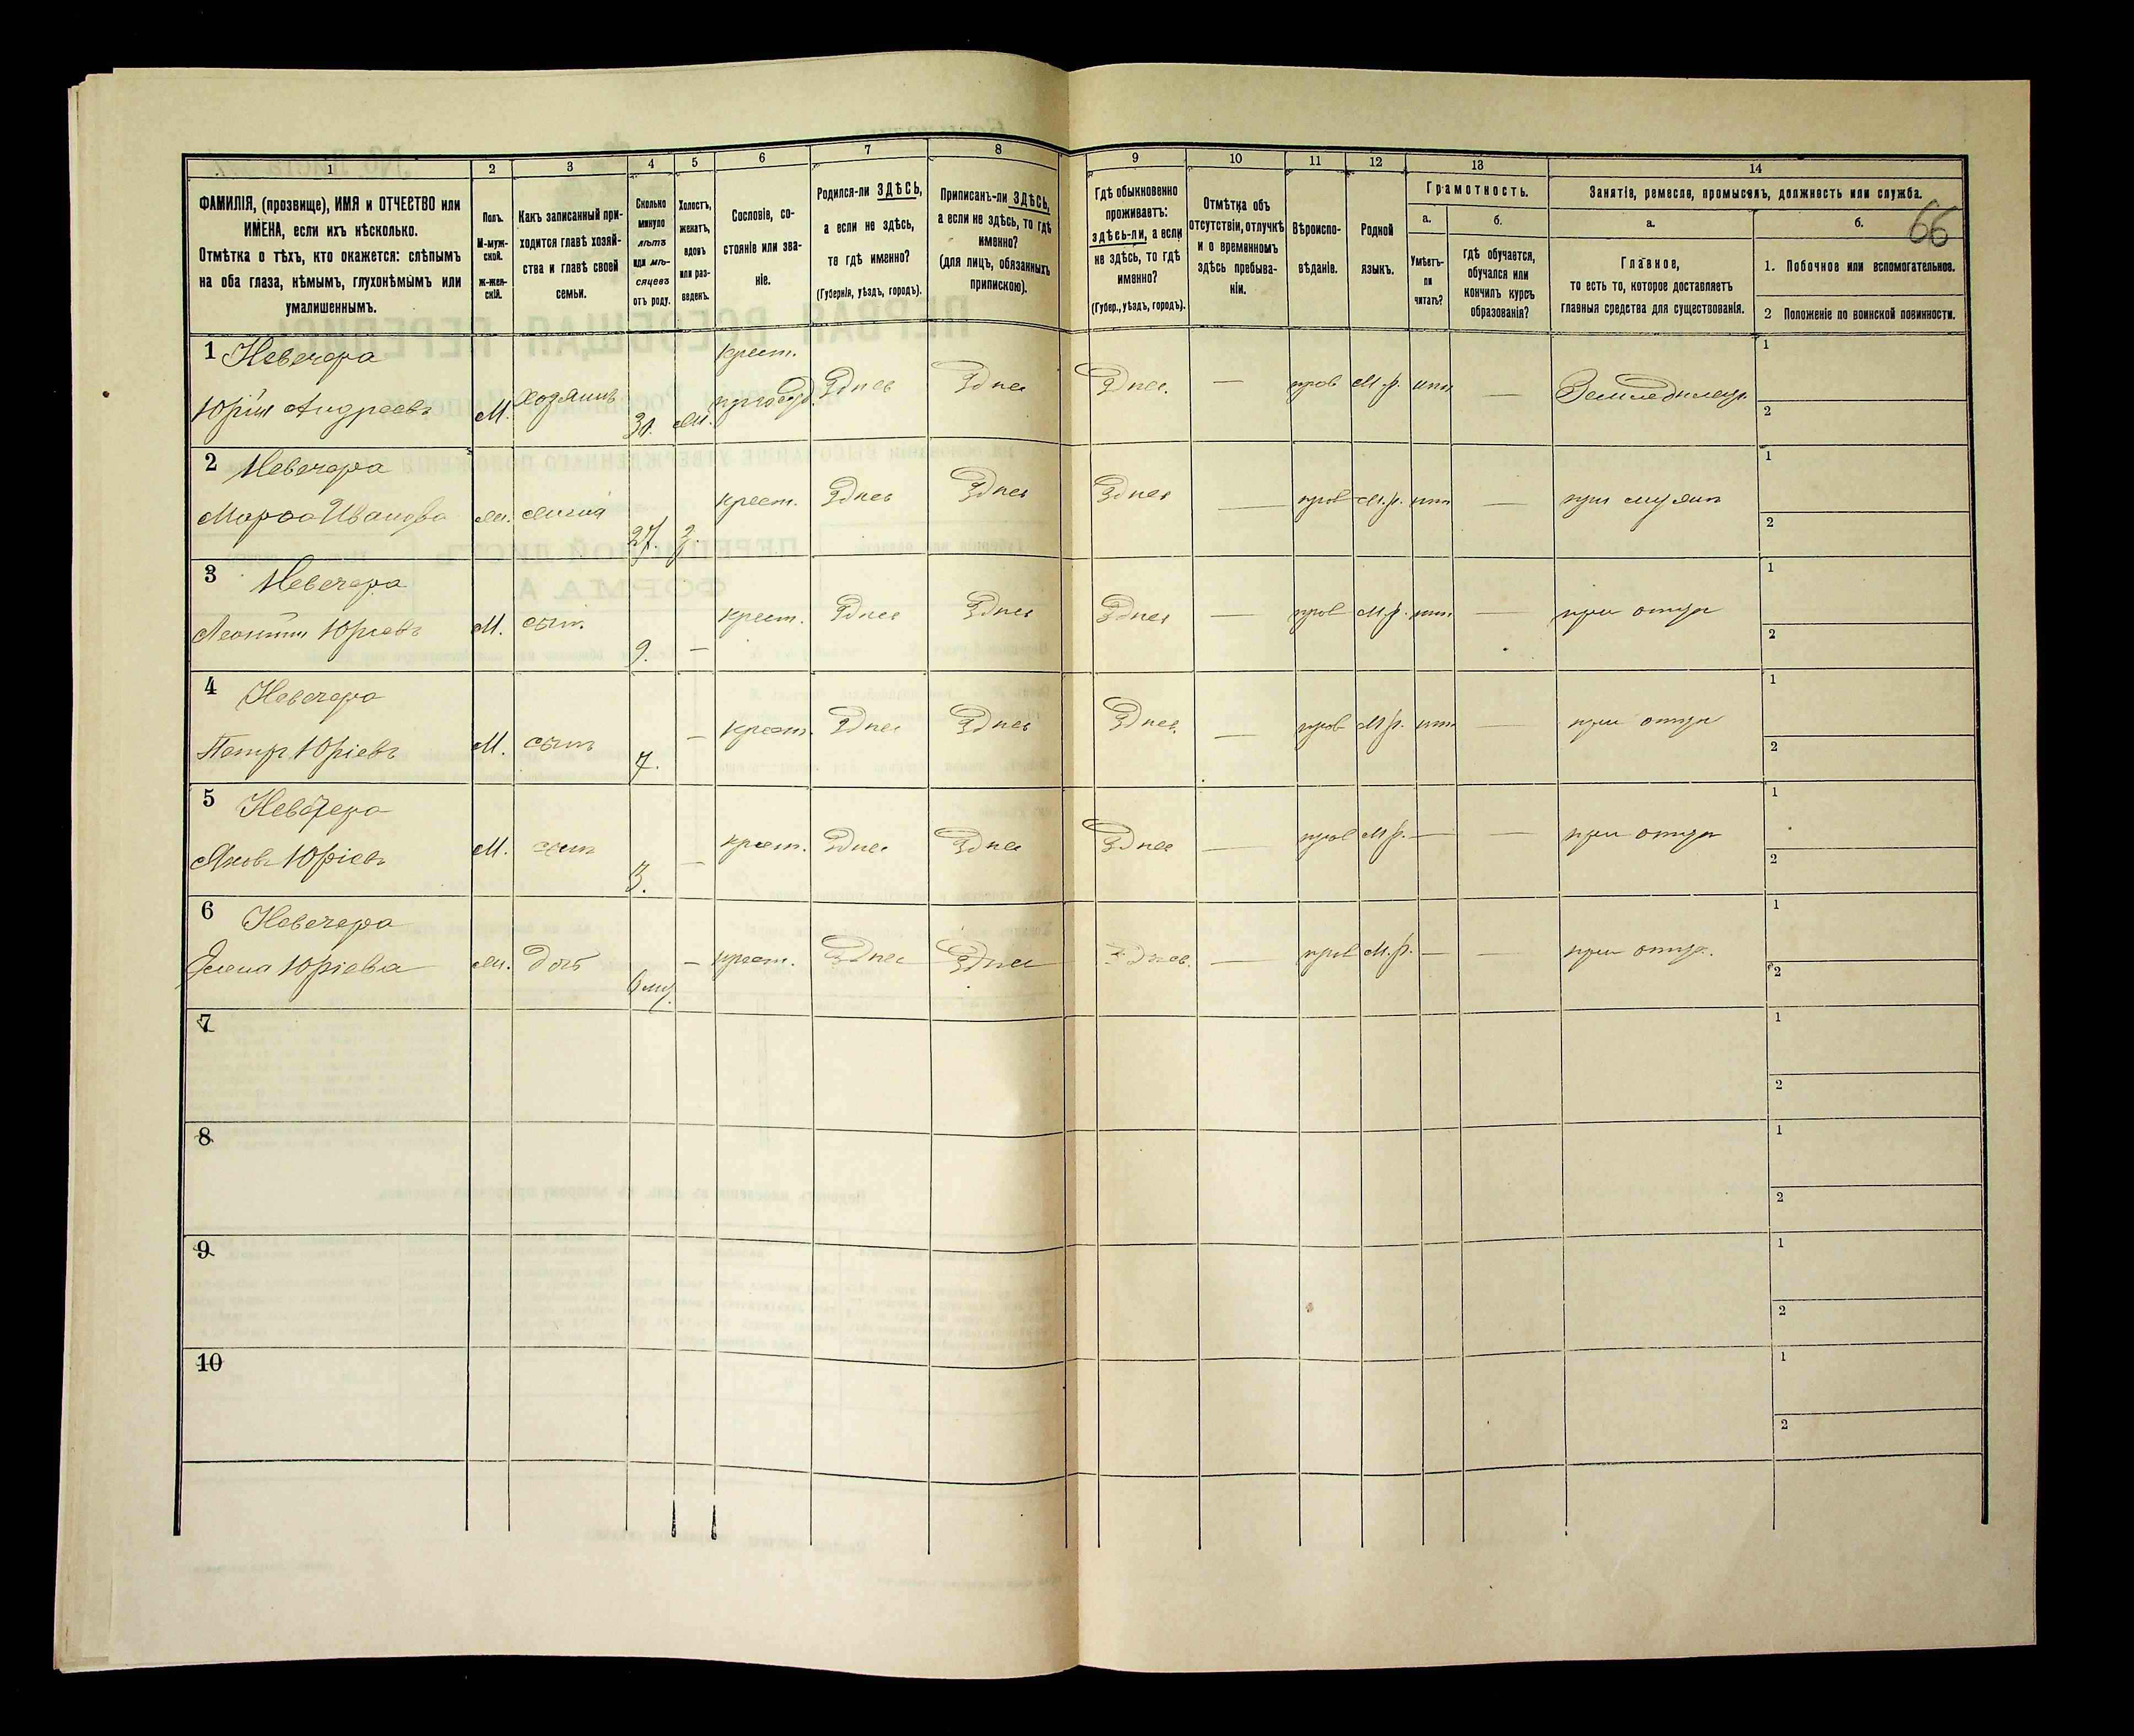 66
1
2
3
4
5
6
7
8
9
10
11
12
13
14
ФАМИЛІЯ, (прозвище), ИМЯ и ОТЧЕСТВО или
ИМЕНА, если ихъ нѣсколько.
Отмѣтка о тѣхъ, кто окажется: слѣпымъ
на оба глаза, нѣмымъ, глухонѣмымъ или
умалишеннымъ.
Полъ.
М-муж-
ской.
Ж-жен-
скій.
Какъ записанный при-
ходится главѣ хозяй-
ства и главѣ своей
семьи.
Сколько
минуло
лѣтъ
или мѣ-
сяцевъ
отъ роду.
Холостъ,
женатъ,
вдовъ
или раз-
веденъ.
Сословіе, со-
стояніе или зва-
ніе.
Родился-ли ЗДѢСЬ,
а если не здѣсь,
то гдѣ именно?
(Губернія, уѣздъ, городъ).
Приписанъ-ли ЗДѢСЬ,
а если не здѣсь, то гдѣ
именно?
(для лицъ, обязанныхъ
припискою).
Гдѣ обыкновенно
проживаетъ:
здѣсь-ли, а если
не здѣсь, то гдѣ
именно?
(Губер., уѣздъ, городъ).
Отмѣтка объ
отсутствіи, отлучкѣ
и о временномъ
здѣсь пребыва-
ніи.
Вѣроиспо-
вѣданіе.
Родной
языкъ.
Грамотность.
а.
Умѣетъ-
ли
читать?
б.
Гдѣ обучается,
обучался или
кончилъ курсъ
образованія?
Занятія, ремесло, промыселъ, должность или служба.
а.
Главное,
то есть то, которое доставляетъ
главныя средства для существованія.
б.
1. Побочное или вспомогательное.
2 Положеніе по воинской повинности.
1 Невечера
Юрій Андреевъ М. хозяинъ 31. крест. Здѣсь Здѣсь Здѣсь. — прав М.р. — 1 2
2 Невечера
Марфа Иванова жена 27. крест. Здѣсь Здѣсь Здѣсь — прав М.р. — при мужѣ 1 2
3 Невечера
Леонтій Юрьевъ М. сынъ 9. — крест. Здѣсь Здѣсь Здѣсь — прав М.р. — при отцѣ 1 2
4 Невечера
Петръ Юріевъ М. сынъ 7. — крест. Здѣсь Здѣсь Здѣсь. — прав М.р. — при отцѣ 1 2
5 Невечера
Яковъ Юріевъ М. сынъ 3. — крест. Здѣсь Здѣсь Здѣсь — прав М.р. — — при отцѣ 1 2
6 Невечера
Елена Юріева дочь — крест. Здѣсь Здѣсь Здѣсь. — прав М.р. — — при отцѣ. 1 2
7 1 2
8 1 2
9 1 2
10 1 2